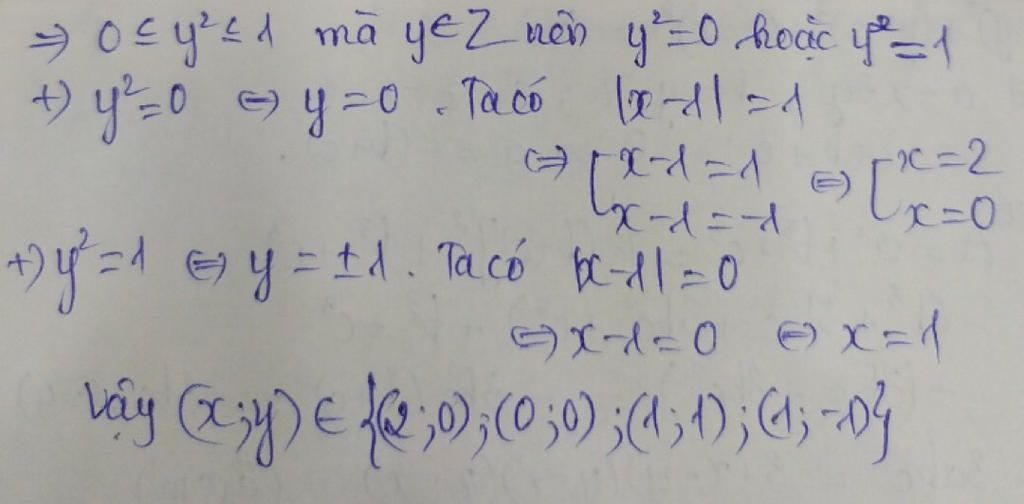 ⇒ 0 ≤ y² ≤ 1 mà y ∈ Z nên y² = 0 hoặc y² = 1
+) y² = 0 ⇔ y = 0. Ta có |x - 1| = 1
⇔ [ x - 1 = 1 ⇔ [ x = 2
x - 1 = -1 x = 0
+) y² = 1 ⇔ y = ±1. Ta có |x - 1| = 0
⇔ x - 1 = 0 ⇔ x = 1
Vậy (x; y) ∈ {(2; 0); (0; 0); (1; 1); (1; -1)}